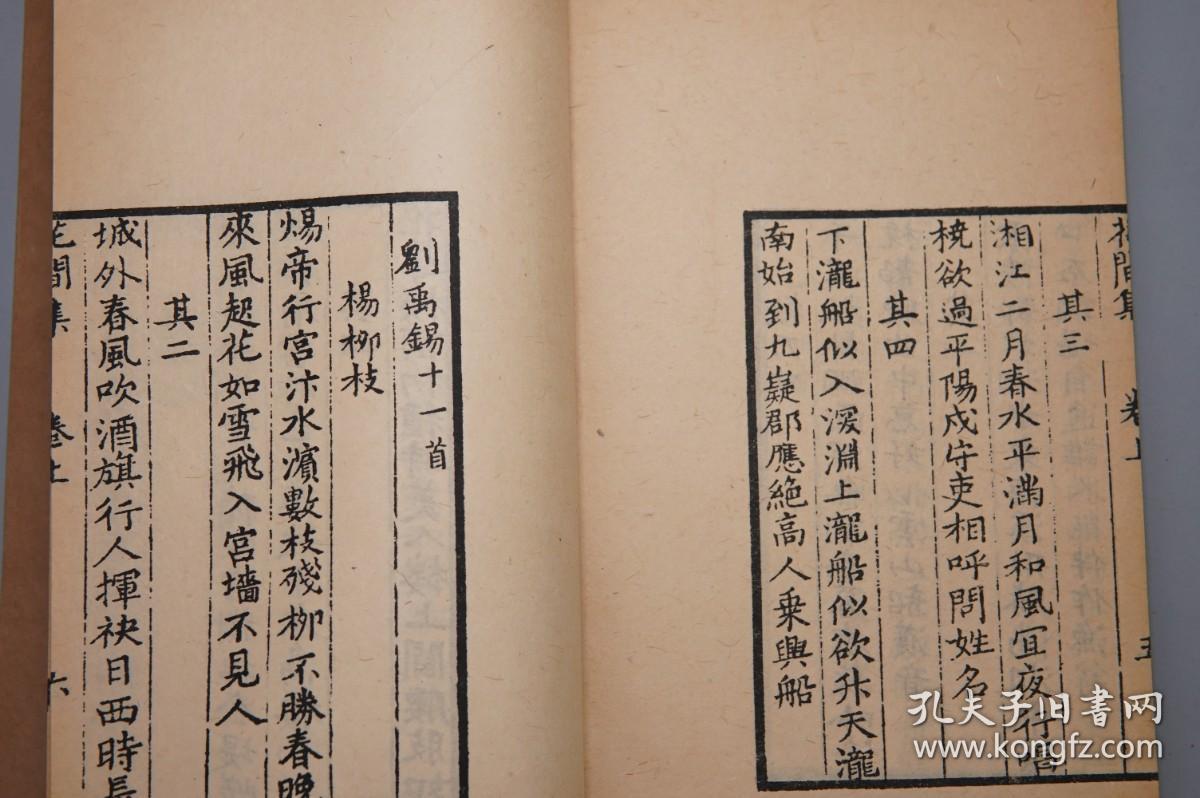 間集
卷上
五
其三
湘江二月春水平滿月和風宜夜行唱
橈欲過平陽戍守吏相呼問姓名
其四
下瀧船似入深淵上瀧船似欲升天瀧
南始到九嶷郡應絶高人乘興船
劉禹錫十一首
楊柳枝
煬帝行宮汴水濱數枝殘柳不勝春晚
來風起花如雪飛入宮墻不見人
其二
城外春風吹酒旗行人揮袂日西時長
花間集
卷上
六
孔夫子旧书网
www.kongfz.com